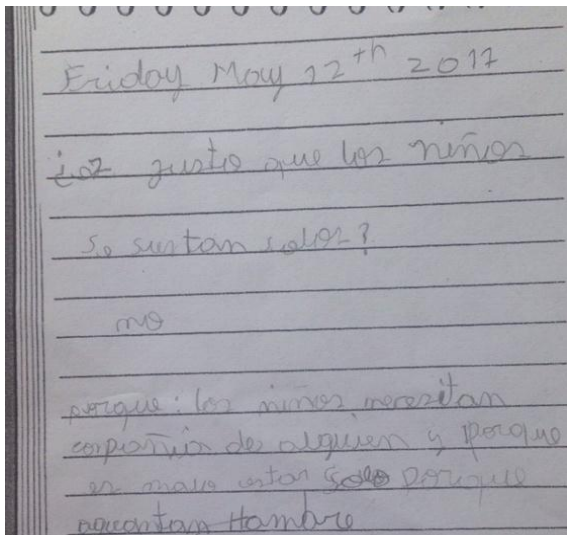 Friday May 12th 2017
¿ez justo que los niños
se sientan solos?
no
porque: los niños necesitan
compañia de alguien y porque
es malo estar solo porque
aguantan Hambre